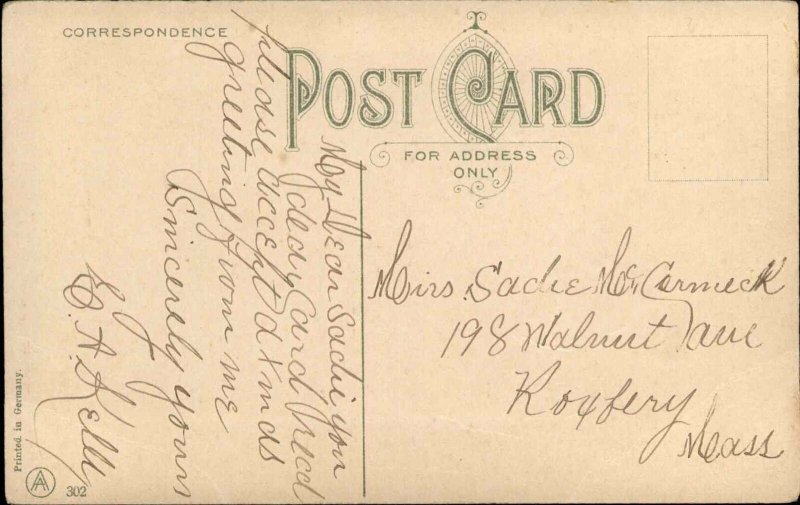 CORRESPONDENCE
POST CARD
FOR ADDRESS
ONLY
My Dear Sadie you
deay Card Recd
please accept d xmas
greeting from me
Sincerely yours
E. A. Kelly
Mirs. Sadie McCormeck
198 Walnut ave
Roxbery
Mass
Printed in Germany.
AA
302